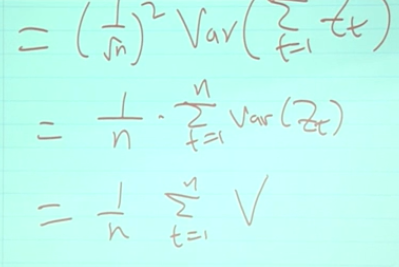 = (1/√n)² Var(∑_{t=1} Z_t)
= 1/n · ∑_{t=1}^{n} Var(Z_t)
= 1/n ∑_{t=1}^{n} V